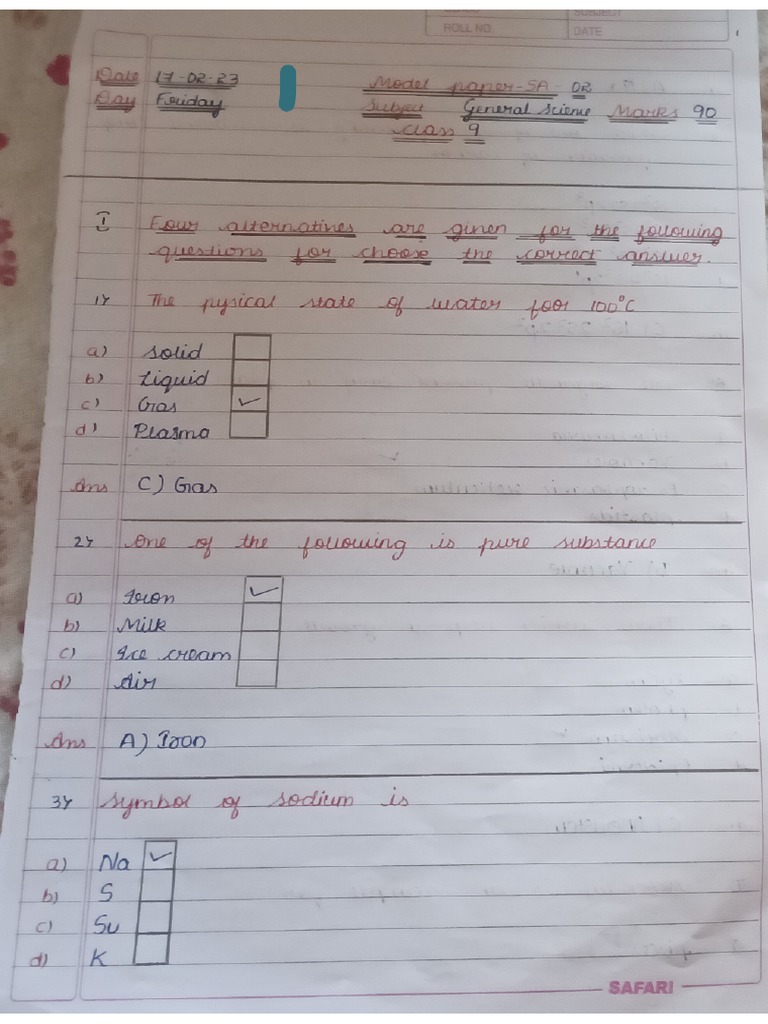 ROLL NO. DATE
Date 17-02-23 Model paper-SA-02
Day Friday Subject General Science Marks 90
Class 9
I Four alternatives are given for the following
questions for choose the correct answer.
1) The pysical state of water foor 100°C
a) Solid
b) Liquid
c) Gas ✓
d) Plasma
Ans C) Gas
2) One of the following is pure substance
a) Iron ✓
b) Milk
c) Ice cream
d) Air
Ans A) Iron
3) Symbol of sodium is
a) Na ✓
b) S
c) Su
d) K
SAFARI